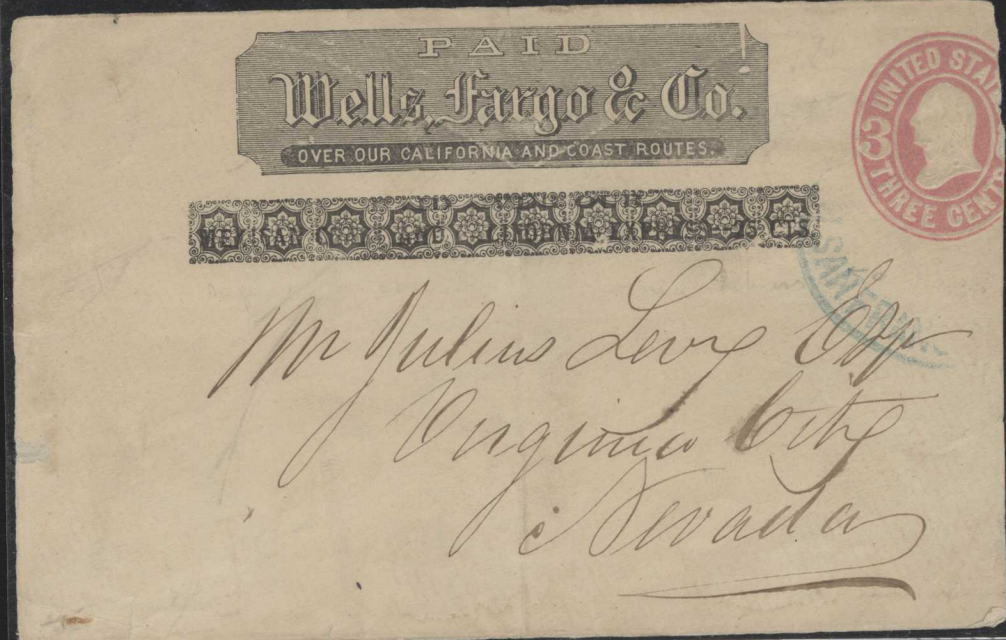 PAID
Wells, Fargo & Co.
OVER OUR CALIFORNIA AND COAST ROUTES.
UNITED STA
3
THREE CENT
CTS.
SAN FRAN
Mr Julius Levy Esqr
Virginia City
Nevada